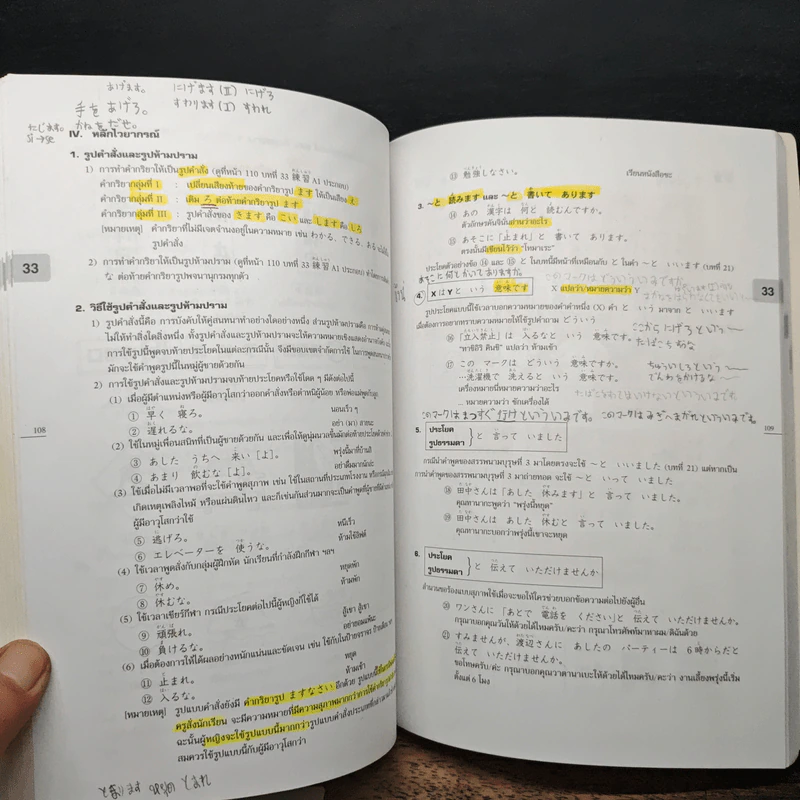 あげます。 にげます(II) にげろ
手を あげろ。 すわります(I) すわれ
かねをだせ。
IV. หลักไวยากรณ์
1. รูปคำสั่งและรูปห้ามปราม
1) การทำคำกริยาให้เป็นรูปคำสั่ง (ดูที่หน้า 110 บทที่ 33 練習 A1 ประกอบ)
คำกริยากลุ่มที่ I : เปลี่ยนเสียงท้ายของคำกริยารูป ます ให้เป็นเสียง え
คำกริยากลุ่มที่ II : เติม ろ ต่อท้ายคำกริยารูป ます
คำกริยากลุ่มที่ III : รูปคำสั่งของ きます คือ こい และ します คือ しろ
[หมายเหตุ] คำกริยาที่ไม่มีเจตจำนงอยู่ในความหมาย เช่น わかる、できる、ある
รูปคำสั่ง
2) การทำคำกริยาให้เป็นรูปห้ามปราม (ดูที่หน้า 110 บทที่ 33 練習 A1 ประกอบ)
な ต่อท้ายคำกริยารูปพจนานุกรมทุกตัว
33
2. วิธีใช้รูปคำสั่งและรูปห้ามปราม
1) รูปคำสั่งนี้คือ การบังคับให้คู่สนทนาทำอย่างใดอย่างหนึ่ง ส่วนรูปห้ามปรามคือ การห้าม
ไม่ให้ทำสิ่งใดสิ่งหนึ่ง ทั้งรูปคำสั่งและรูปห้ามปรามจะให้ความหมายเชิง
การใช้รูปนี้พูดจบท้ายประโยคในแต่ละกรณีนั้น จึงมีขอบเขตจำกัดการใช้
มักจะใช้คำพูดรูปนี้ในหมู่ผู้ชายด้วยกัน
2) การใช้รูปคำสั่งและรูปห้ามปรามจบท้ายประโยคหรือใช้โดด ๆ มีดังต่อไปนี้
(1) เมื่อผู้มีตำแหน่งหรือผู้มีอาวุโสกว่าออกคำสั่งหรือตำหนิผู้น้อย
① 早く 寝ろ。 นอนเร็ว ๆ
② 遅れるな。 อย่า (มา) สายนะ
(2) ใช้ในหมู่เพื่อนสนิทที่เป็นผู้ชายด้วยกัน
③ あした うちへ 来い [よ]。 พรุ่งนี้มาที่บ้านสิ
④ あまり 飲むな [よ]。 อย่าดื่มมากนักล่ะ
(3) ใช้เมื่อไม่มีเวลาพอที่จะใช้คำพูดสุภาพ เช่น ใช้ในสถานที่ประกอบโรงงาน
เกิดเหตุเพลิงไหม้ หรือแผ่นดินไหว
ผู้มีอาวุโสกว่าใช้
⑤ 逃げろ。 หนีเร็ว
⑥ エレベーターを 使うな。 ห้ามใช้ลิฟต์
(4) ใช้เวลาพูดสั่งกับกลุ่มผู้ฝึกหัด นักเรียนที่กำลังฝึกกีฬา ฯลฯ
⑦ 休め。 หยุดพัก
⑧ 休むな。 ห้ามพัก
(5) ใช้เวลาเชียร์กีฬา กรณีประโยคต่อไปนี้ผู้หญิงก็ใช้ได้
⑨ 頑張れ。 สู้เขา สู้เขา
⑩ 負けるな。 อย่ายอมแพ้นะ
(6) เมื่อต้องการให้ได้ผลอย่างหนักแน่นและชัดเจน เช่น ใช้กับในป้ายจราจร
⑪ 止まれ。 หยุด
⑫ 入るな。 ห้ามเข้า
[หมายเหตุ] รูปแบบคำสั่งยังมี คำกริยารูป ますなさい อีกด้วย
ครูสั่งนักเรียน จะมีความหมายที่มีความสุภาพมากกว่า
ฉะนั้นผู้หญิงจะใช้รูปแบบนี้มากกว่ารูปแบบคำสั่งประเภท
สมควรใช้รูปแบบนี้กับผู้มีอาวุโสกว่า
108
⑬ 勉強しなさい。 เรียนหนังสือซะ
3. ～と 読みます และ ～と 書いて あります
⑭ あの 漢字は 何と 読むんですか。
ตัวอักษรคันจินั่นอ่านว่าอะไร
⑮ あそこに「止まれ」と 書いて あります。
ตรงนั้นมีเขียนไว้ว่า "โทมาเระ"
ประโยคตัวอย่างข้อ ⑭ และ ⑮ と ในบทนี้มีหน้าที่เหมือนกับ と ในคำ ～と いいます (บทที่ 21)
4. XはYと いう 意味です X แปลว่า/หมายความว่า Y
33
รูปประโยคแบบนี้ใช้เวลาบอกความหมายของคำคำหนึ่ง (X) คำ と いう มาจาก と いいます
เมื่อต้องการอยากทราบความหมายให้ใช้รูปคำถาม どういう
⑯ 「立入禁止」は 入るなと いう 意味です。
"ทาชิอิริ คินชิ" แปลว่า ห้ามเข้า
⑰ この マークは どういう 意味ですか。
…洗濯機で 洗えると いう 意味です。
เครื่องหมายนี้หมายความว่าอะไร
… หมายความว่า ซักเครื่องได้
このマークはまっすぐ行けといういみです。 このマークはみぎへまがれといういみです。
5. ประโยครูปธรรมดา } と 言って いました
109
กรณีนำคำพูดของสรรพนามบุรุษที่ 3 มาโดยตรงจะใช้ ～と いいました (บทที่ 21) แต่หากเป็น
การนำคำพูดของสรรพนามบุรุษที่ 3 มาถ่ายทอด จะใช้ ～と いって いました
⑱ 田中さんは「あした 休みます」と 言って いました。
คุณทานากะพูดว่า "พรุ่งนี้หยุด"
⑲ 田中さんは あした 休むと 言って いました。
คุณทานากะบอกว่าพรุ่งนี้เขาจะหยุด
6. ประโยครูปธรรมดา } と 伝えて いただけませんか
สำนวนขอร้องแบบสุภาพใช้เมื่อจะขอให้ใครช่วยบอกข้อความต่อไปยังผู้อื่น
⑳ ワンさんに「あとで 電話を ください」と 伝えて いただけませんか。
กรุณาบอกคุณวันให้ด้วยได้ไหมครับ/คะว่า กรุณาโทรศัพท์มาหาผม/ดิฉันด้วย
㉑ すみませんが、渡辺さんに あしたの パーティーは 6時からだと
伝えて いただけませんか。
ขอโทษครับ/ค่ะ กรุณาบอกคุณวาตานาเบะให้ด้วยได้ไหมครับ/คะว่า งานเลี้ยงพรุ่งนี้เริ่ม
ตั้งแต่ 6 โมง